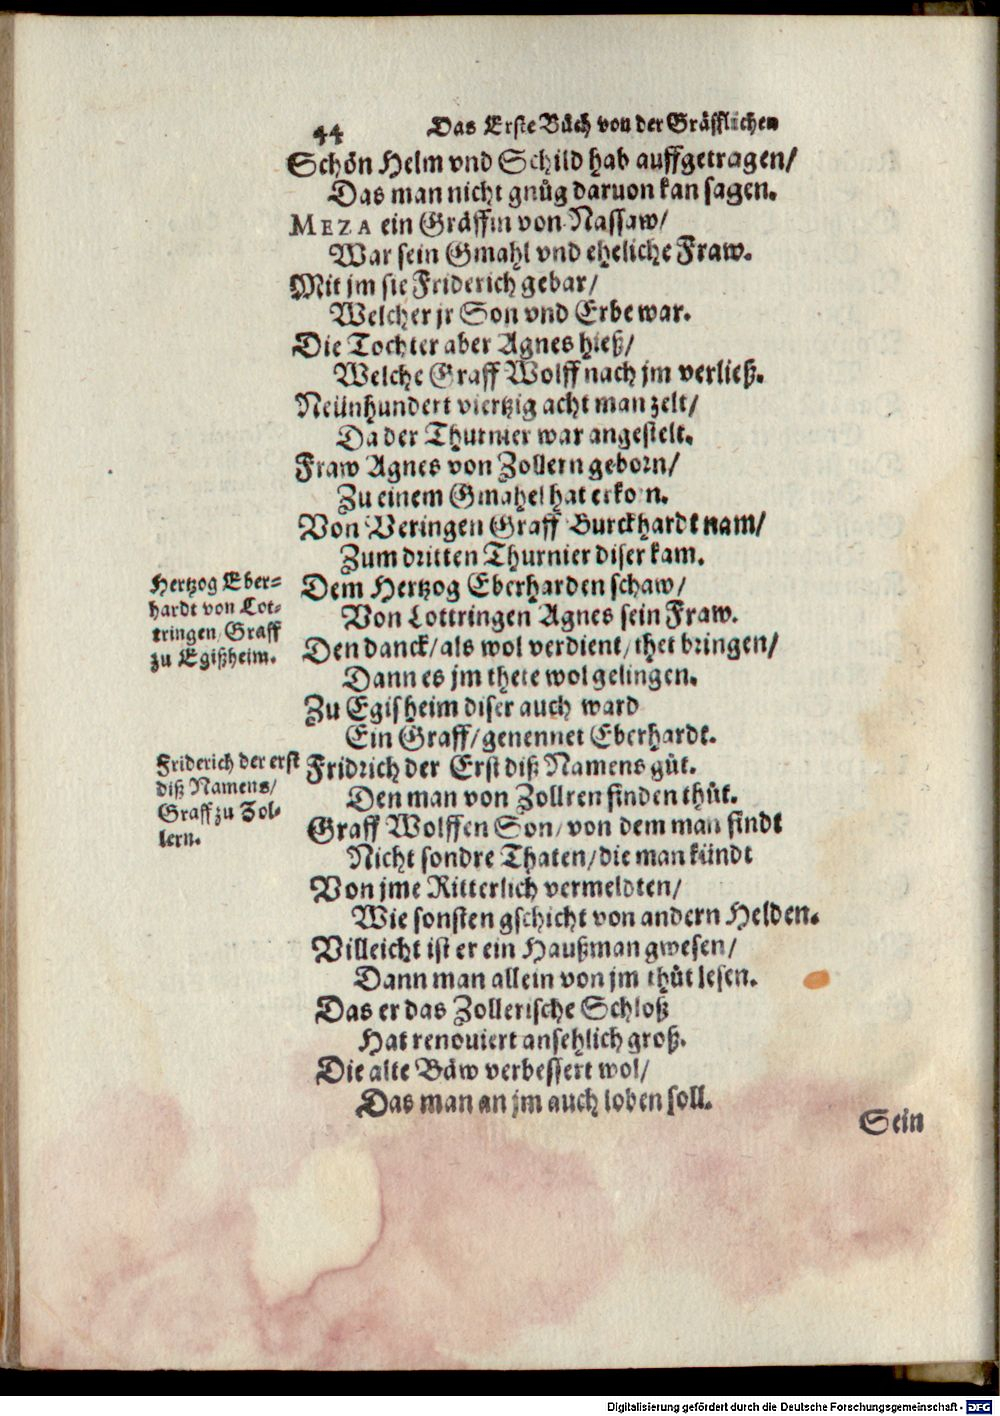 44 Das Erste Bůch von der Gräfflichen
Schön Helm vnd Schild hab auffgetragen/
Das man nicht gnůg daruon kan sagen.
MEZA ein Gräffin von Nassaw/
War sein Gmahl vnd eheliche Fraw.
Mit jm sie Friderich gebar/
Welcher jr Son vnd Erbe war.
Die Tochter aber Agnes hieß/
Welche Graff Wolff nach jm verließ.
Neünhundert viertzig acht man zelt/
Da der Thurnier war angestelt.
Fraw Agnes von Zollern geborn/
Zu einem Gmahel hat erkorn.
Von Veringen Graff Burckhardt nam/
Zum dritten Thurnier diser kam.
Hertzog Eber-
hardt von Lot-
tringen/Graff
zu Egißheim.
Dem Hertzog Eberharden schaw/
Von Lottringen Agnes sein Fraw.
Den danck/als wol verdient/thet bringen/
Dann es jm thete wol gelingen.
Zu Egisheim diser auch ward
Ein Graff/genennet Eberhardt.
Friderich der erst
diß Namens/
Graff zu Zol-
lern.
Fridrich der Erst diß Namens gůt.
Den man von Zollren finden thůt.
Graff Wolffen Son/von dem man findt
Nicht sondre Thaten/die man kündt
Von jme Ritterlich vermeldten/
Wie sonsten gschicht von andern Helden.
Villeicht ist er ein Haußman gwesen/
Dann man allein von jm thůt lesen.
Das er das Zollerische Schloß
Hat renouiert ansehlich groß.
Die alte Bäw verbessert wol/
Das man an jm auch loben soll.
Sein
Digitalisierung gefördert durch die Deutsche Forschungsgemeinschaft - DFG